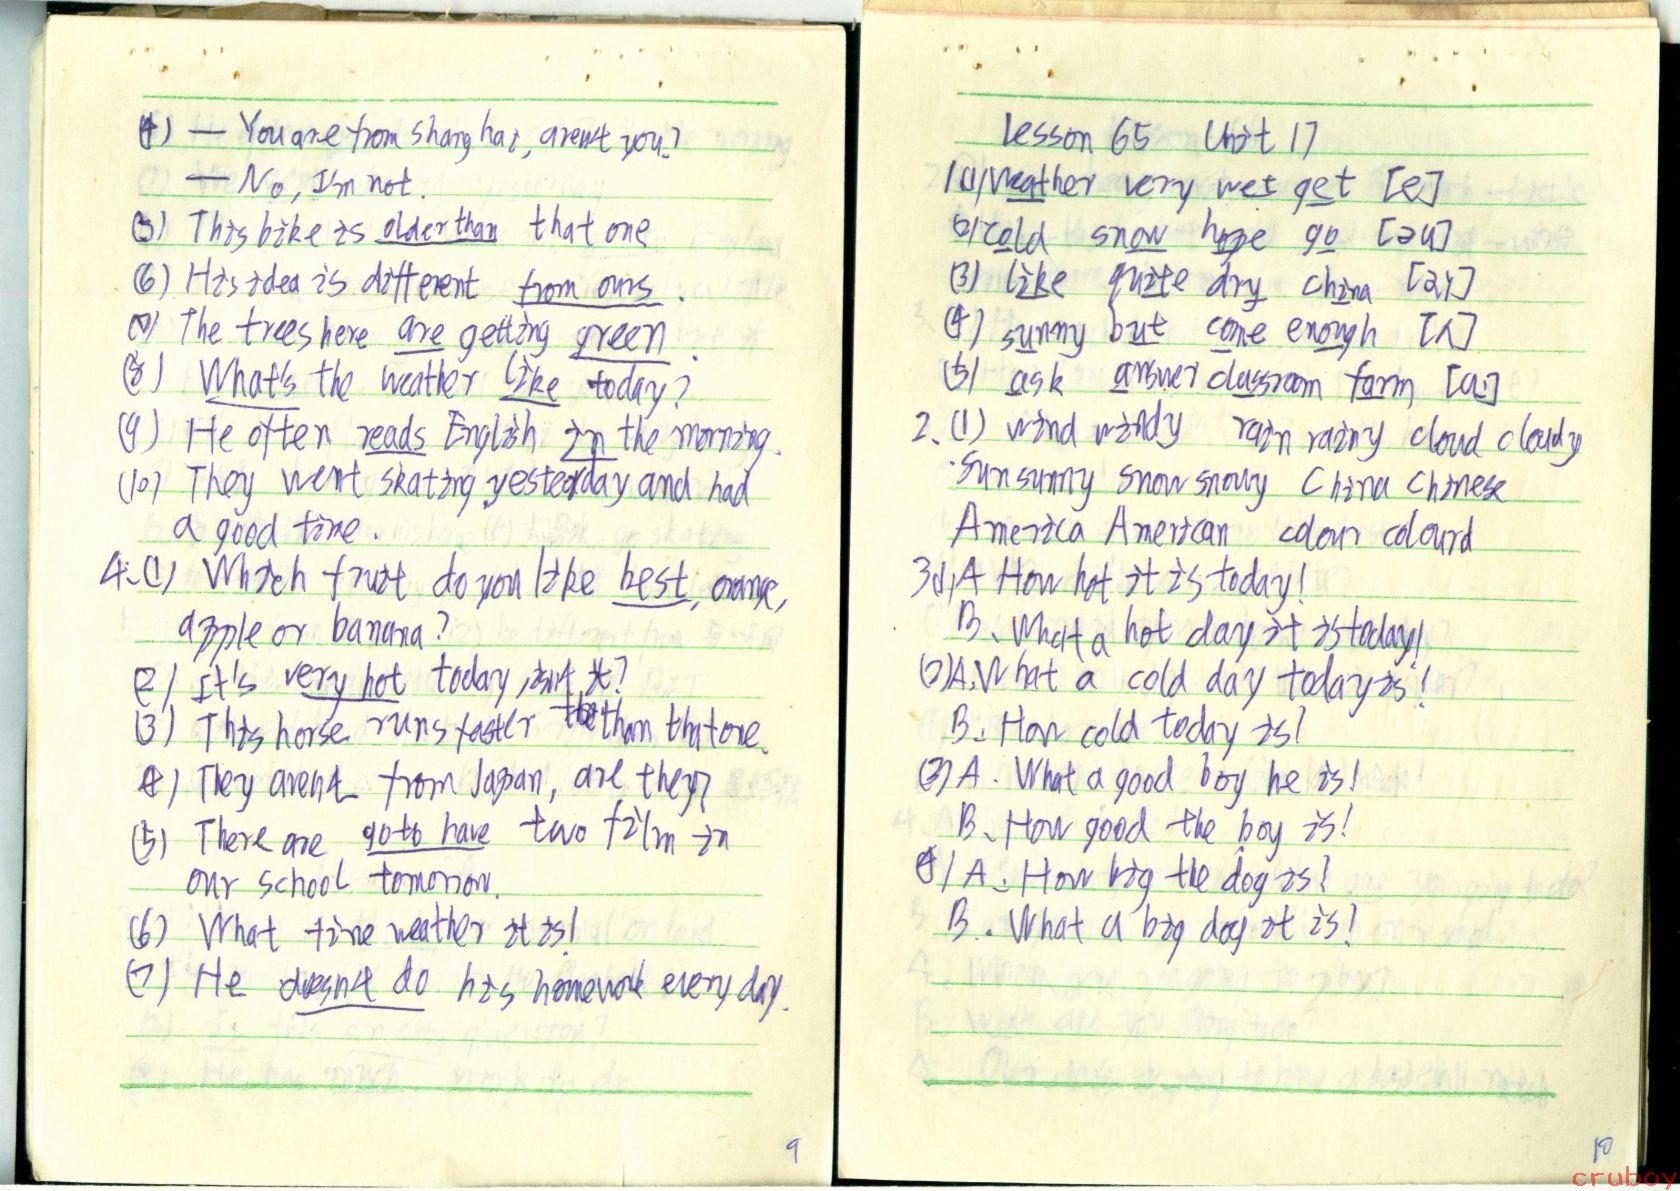 (4) — You are from Shanghai, aren't you?
— No, I'm not.
(5) This bike is older than that one
(6) His idea is different from ours.
(7) The trees here are getting green.
(8) What's the weather like today?
(9) He often reads English in the morning.
(10) They went skating yesterday and had
a good time.
4. (1) Which fruit do you like best, orange,
apple or banana?
(2) It's very hot today, isn't it?
(3) This horse runs faster than that one.
(4) They aren't from Japan, are they?
(5) There are go to have two film in
our school tomorrow.
(6) What fine weather it is!
(7) He doesn't do his homework every day.
9
Lesson 65 Unit 17
1 (1) weather very wet get [e]
(2) cold snow hope go [əu]
(3) like quite dry china [ai]
(4) sunny but come enough [ʌ]
(5) ask answer classroom farm [a:]
2. (1) wind windy rain rainy cloud cloudy
sun sunny snow snowy China Chinese
America American colour colourd
3 (1) A How hot it is today!
B. What a hot day it is today!
(2) A. What a cold day today is!
B. How cold today is!
(3) A. What a good boy he is!
B. How good the boy is!
(4) A. How big the dog is!
B. What a big dog it is!
10
cruboy